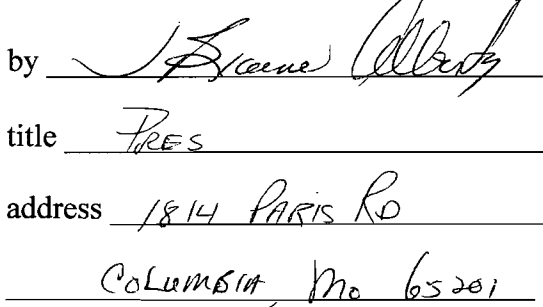 by
title PRES
address 1814 PARIS RD
COLUMBIA, MO 65201